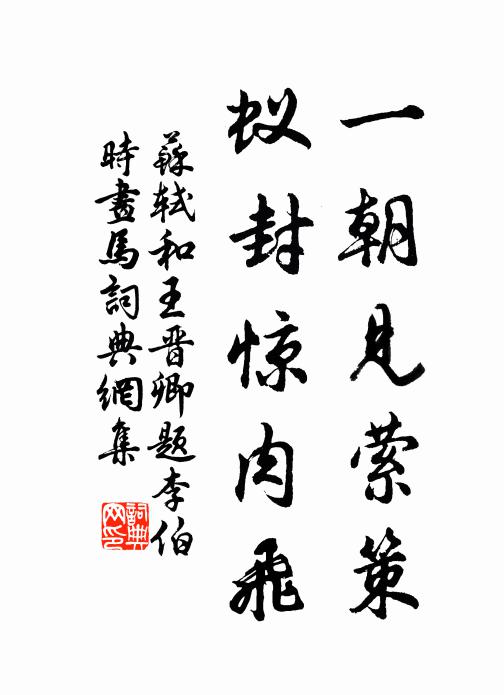 一朝见萦策
蚁封惊肉飛
蘇軾和王晋卿题李伯
時畫馬詞典網集
詞典网印